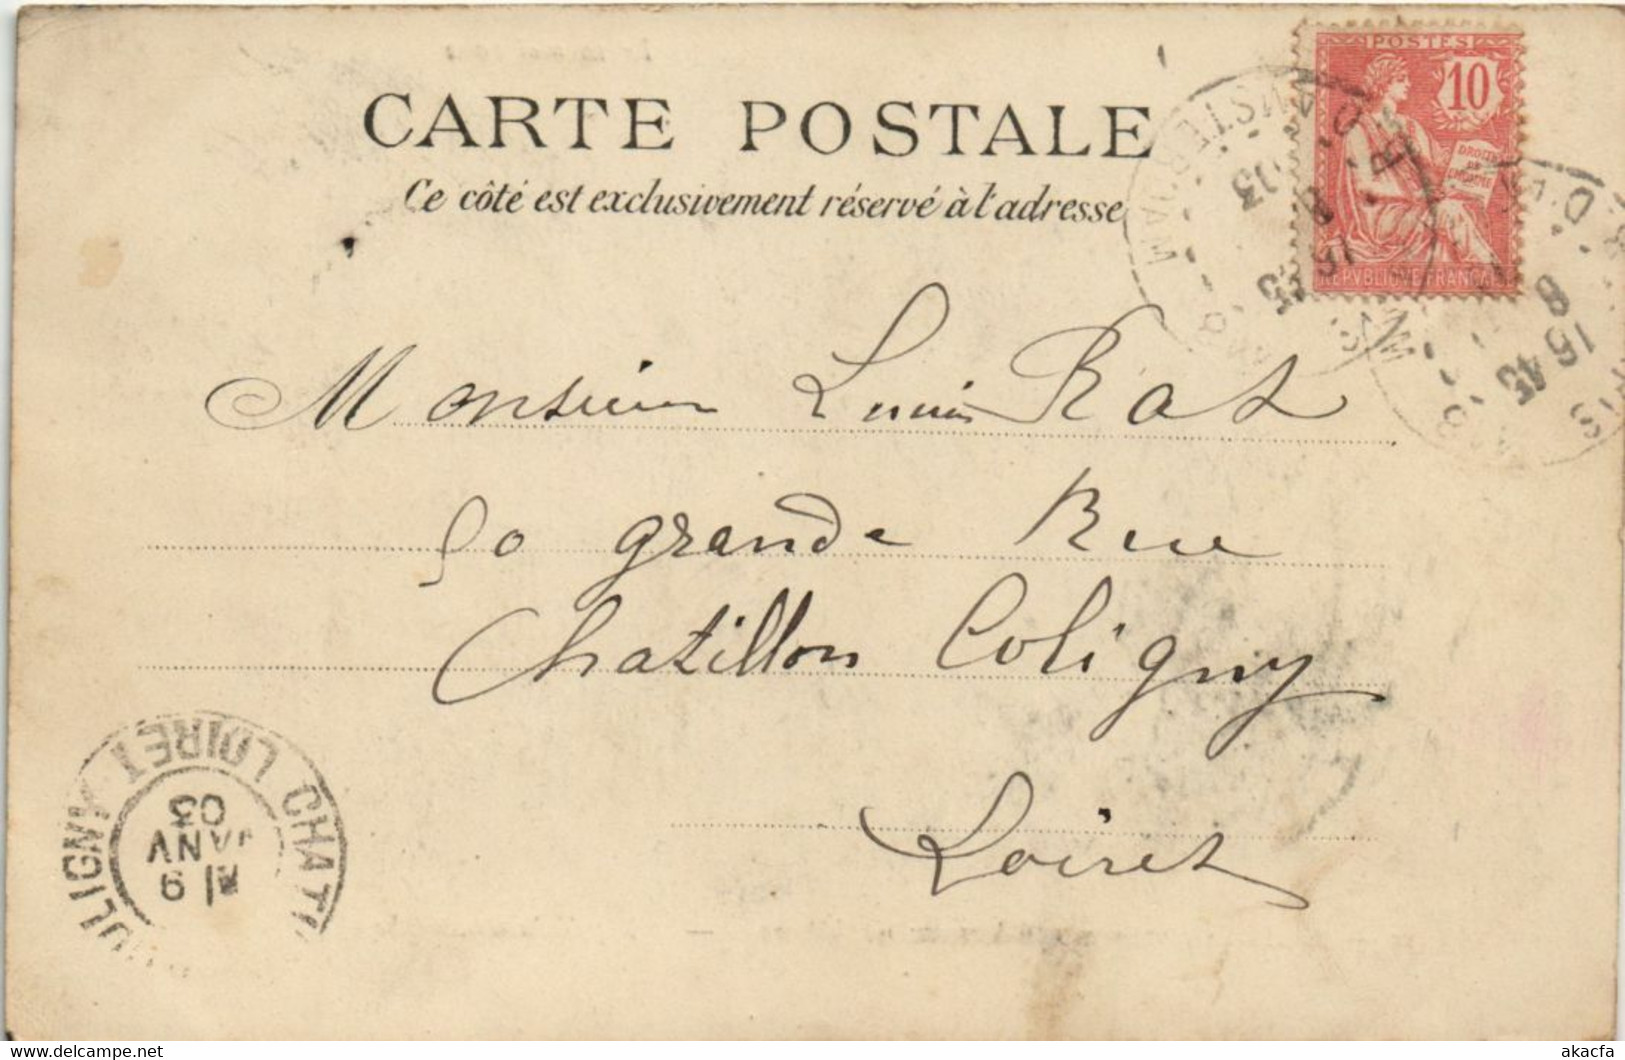 CARTE POSTALE
Ce côté est exclusivement réservé à l'adresse
POSTES
10
DROITS
DE
L'HOMME
REPVBLIQVE FRANÇAISE
16 45
8
03
16 45
8
Monsieur Louis Ras
50 grande Rue
Chatillon Coligny
Loiret
CHATI OLIGNY LOIRET
9
JANV
03
akacfa